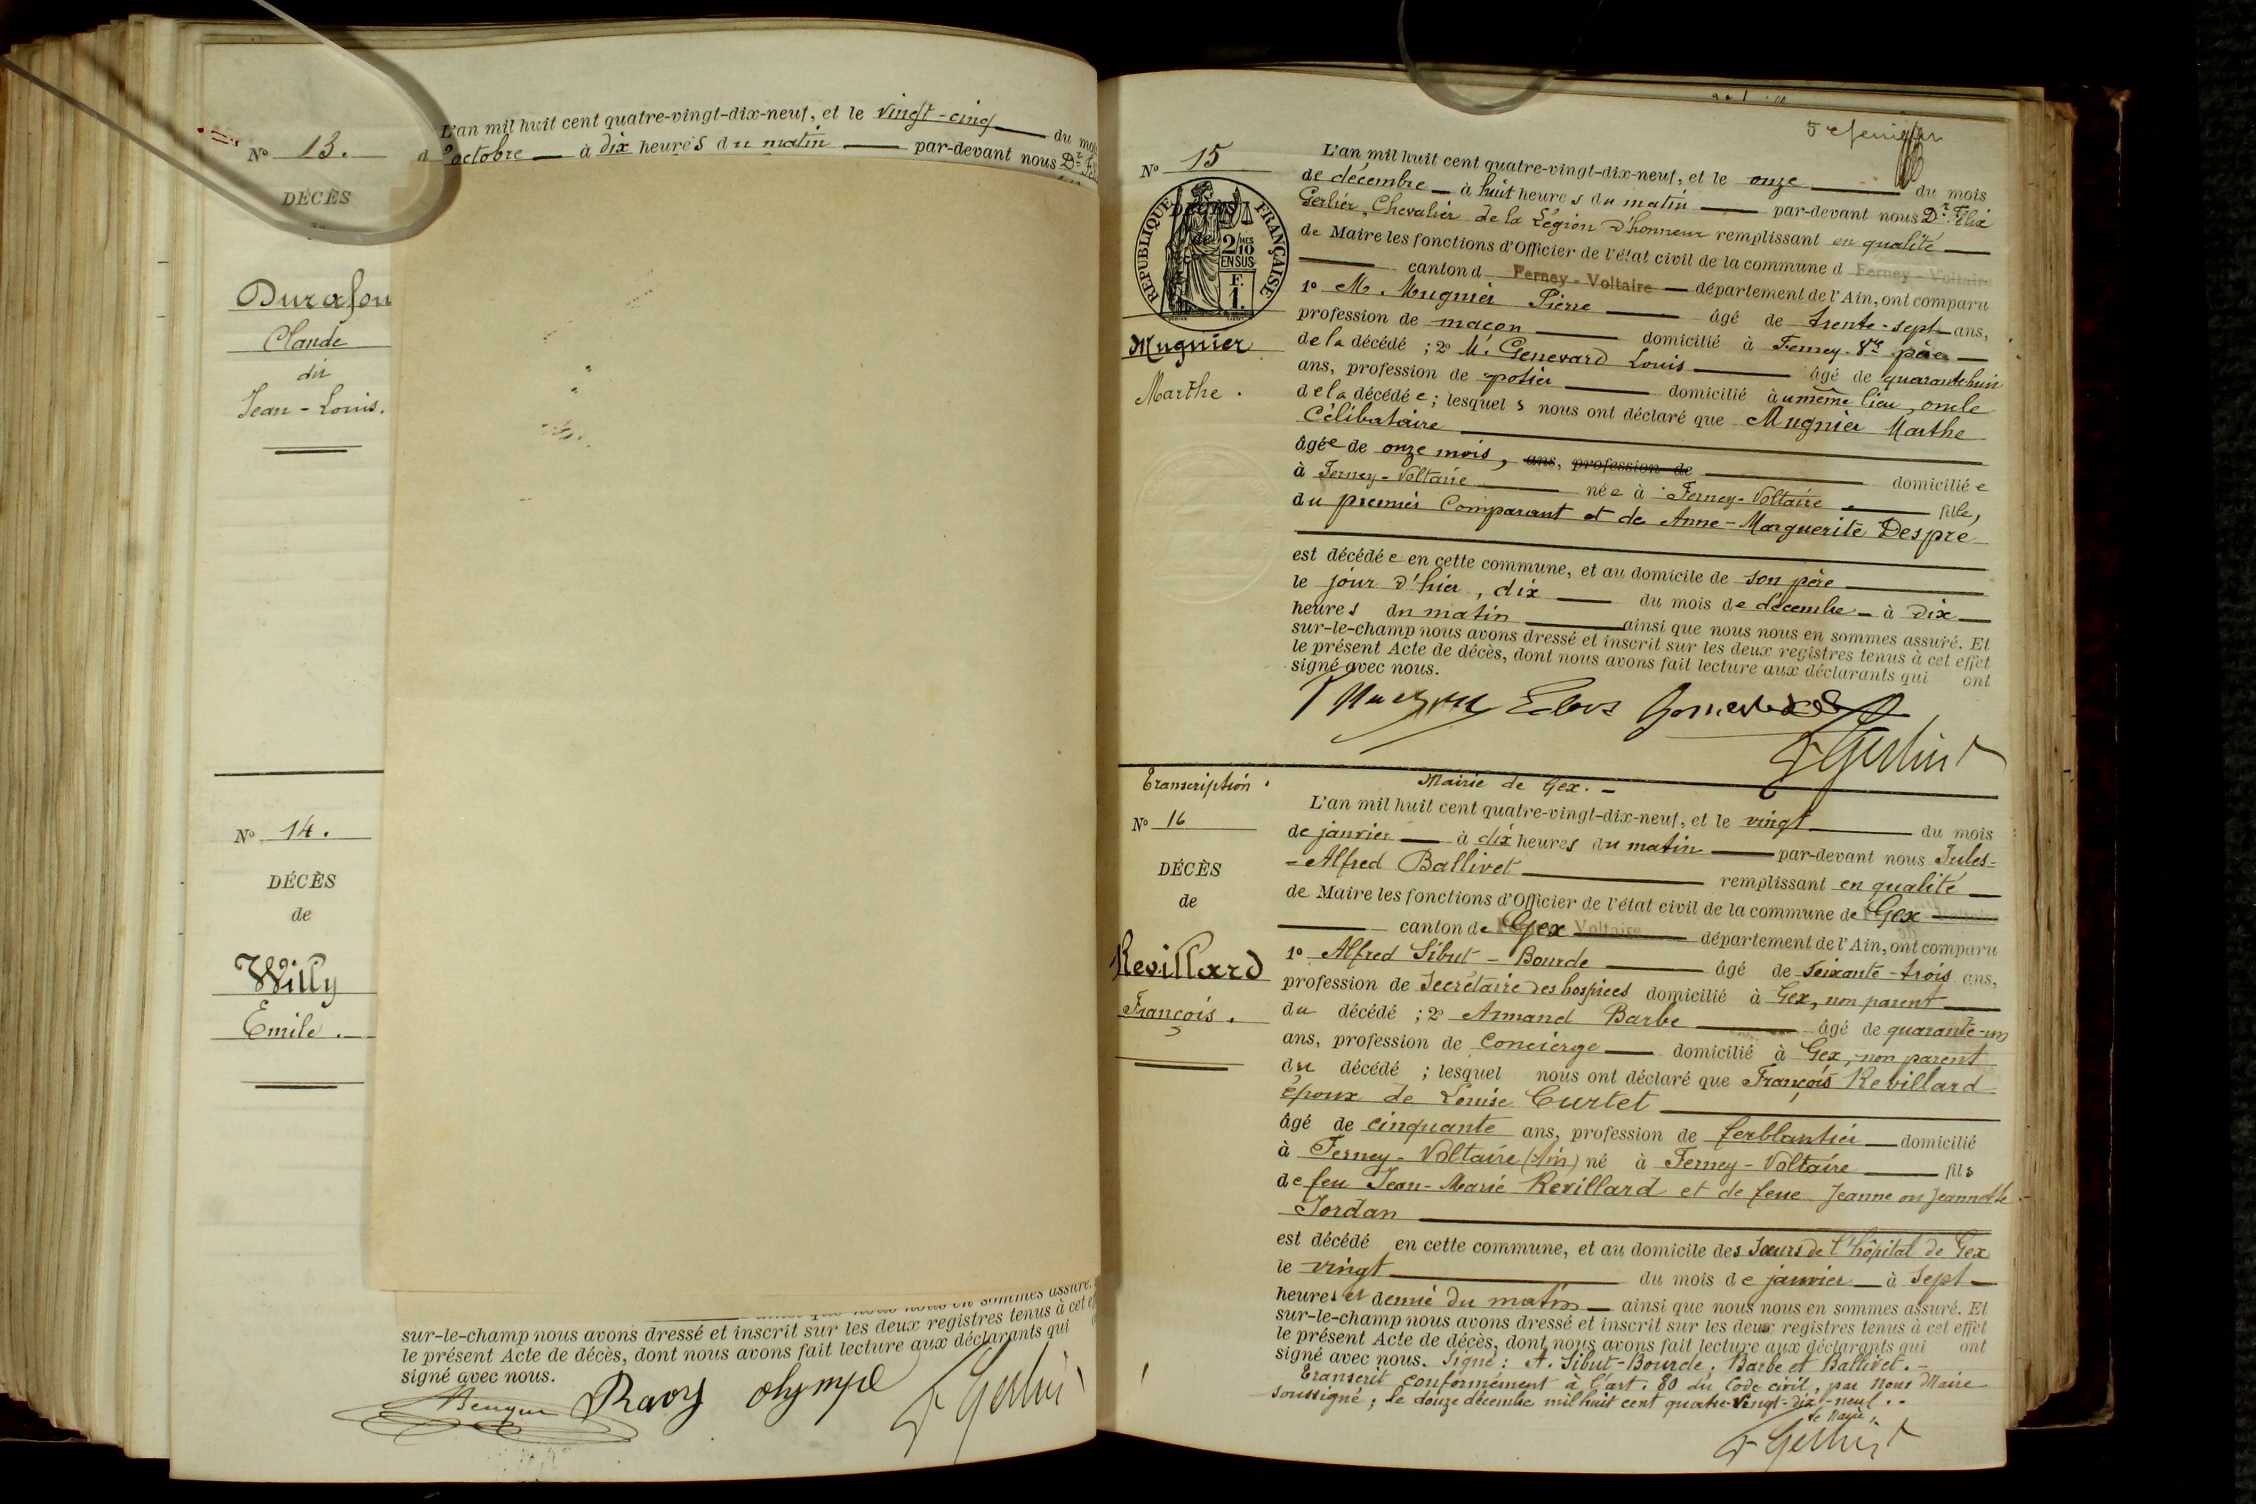 No 13.
DÉCÈS
Durafou
Claude
dit
Jean-Louis.
L'an mil huit cent quatre-vingt-dix-neuf, et le vingt-cinq du mois
d'octobre à dix heures du matin par-devant nous Dr
No 14.
DÉCÈS
de
Willy
Emile.
nous nous en sommes assuré.
sur-le-champ nous avons dressé et inscrit sur les deux registres tenus à cet
le présent Acte de décès, dont nous avons fait lecture aux déclarants qui
signé avec nous.
Ravy olympe F Gerlier
5e feuillet
No 15
RÉPUBLIQUE FRANÇAISE
2/10 MES
EN SUS
F.
1.
Mugnier
Marthe.
L'an mil huit cent quatre-vingt-dix-neuf, et le onze du mois
de décembre à huit heures du matin par-devant nous Dr. Félix
Gerlier, Chevalier de la Légion D'honneur remplissant en qualité
de Maire les fonctions d'Officier de l'état civil de la commune d Ferney-Voltaire
canton d Ferney-Voltaire département de l'Ain, ont comparu
1o M. Mugnier Pierre âgé de trente-sept ans,
profession de maçon domicilié à Ferney-Vre père
de la décédé ; 2o M. Genevard Louis âgé de quarante huit
ans, profession de potier domicilié au même lieu, oncle
de la décédée ; lesquels nous ont déclaré que Mugnier Marthe
Célibataire
âgée de onze mois, ans, profession de domiciliée
à Ferney-Voltaire née à Ferney-Voltaire, fille,
du premier Comparant et de Anne-Marguerite Despre
est décédée en cette commune, et au domicile de son père
le jour d'hier, dix du mois de décembre à dix
heures du matin ainsi que nous nous en sommes assuré. Et
sur-le-champ nous avons dressé et inscrit sur les deux registres tenus à cet effet
le présent Acte de décès, dont nous avons fait lecture aux déclarants qui ont
signé avec nous.
F Gerlier
Transcription. Mairie de Gex. -
No 16
DÉCÈS
de
Revillard
François.
L'an mil huit cent quatre-vingt-dix-neuf, et le vingt du mois
de janvier à dix heures du matin par-devant nous Jules-
-Alfred Ballivet remplissant en qualité
de Maire les fonctions d'Officier de l'état civil de la commune de Gex
canton de Gex Voltaire département de l'Ain, ont comparu
1o Alfred Sibut-Bourde âgé de soixante-trois ans,
profession de Secrétaire des hospices domicilié à Gex, non parent
du décédé ; 2o Armand Barbe âgé de quarante-un
ans, profession de Concierge domicilié à Gex, non parent
du décédé ; lesquel nous ont déclaré que François Revillard
Époux de Louise Curtet
âgé de cinquante ans, profession de ferblantier domicilié
à Ferney-Voltaire (Ain) né à Ferney-Voltaire fils
de feu Jean-Marie Revillard et de feue Jeanne ou Jeannette
Jordan
est décédé en cette commune, et au domicile des Sœurs de l'hôpital de Gex
le vingt du mois de janvier à sept
heures et demie du matin ainsi que nous nous en sommes assuré. Et
sur-le-champ nous avons dressé et inscrit sur les deux registres tenus à cet effet
le présent Acte de décès, dont nous avons fait lecture aux déclarants qui ont
signé avec nous. Signé : A. Sibut-Bourde, Barbe et Ballivet. -
Transcrit conformément à l'art. 80 du Code civil, par Nous Maire
soussigné ; le douze décembre mil huit cent quatre-vingt-dix-neuf. -
Le Maire,
F Gerlier